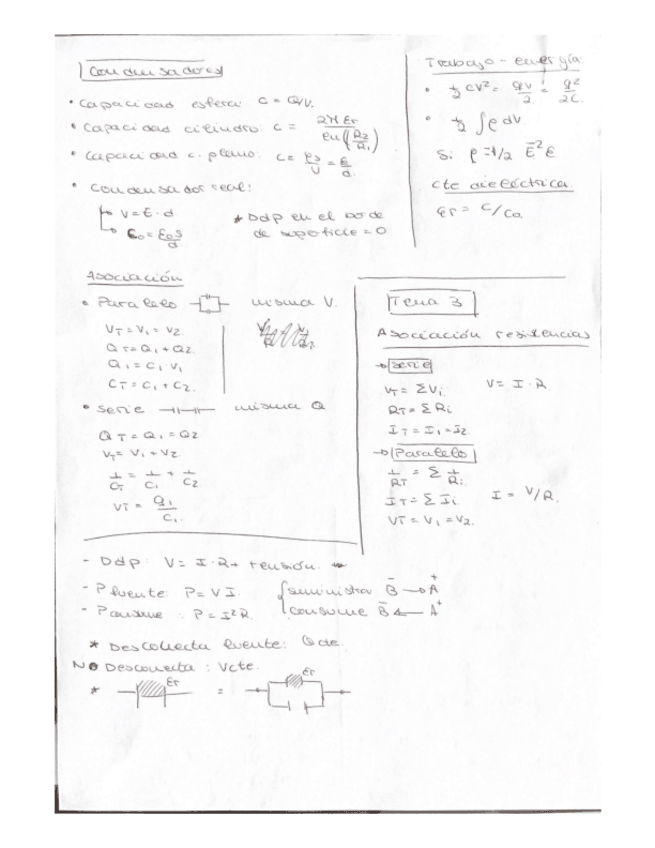 Condensadores
• Capacidad esfera: C = Q/V.
• Capacidad cilindro: C = 2π Er / en(R2/R1)
• Capacidad c. plano: C = ρs/V = E/d.
• Condensador real:
V = E · d
C0 = E0 S/d
* Ddp en el borde de superficie = 0
Trabajo - energía:
• 1/2 CV² = qV/2 = q²/2C.
• 1/2 ∫ρ dV
Si ρ = 1/2 E² E
cte dieléctrica.
Er = C/Co
Asociación
• Paralelo misma V.
VT = V1 = V2.
QT = Q1 + Q2
Q1 = C1 V1
CT = C1 + C2.
• Serie misma Q
QT = Q1 = Q2
VT = V1 + V2.
1/CT = 1/C1 + 1/C2
VT = Q1/C1.
Tema 3
Asociación resistencias
→ Serie
VT = ΣVi. V = I · R.
RT = Σ Ri
IT = I1 = I2
→ Paralelo
1/RT = Σ 1/Ri
IT = Σ Ii. I = V/R.
VT = V1 = V2.
- Ddp: V = I · R + tensión.
- Pfuente: P = V I. suministra B⁻ → A⁺
- Pconsume: P = I² R. consume B⁻ ← A⁺
* Desconecta fuente: Q cte.
NO Desconecta: Vcte.
* Er = Er